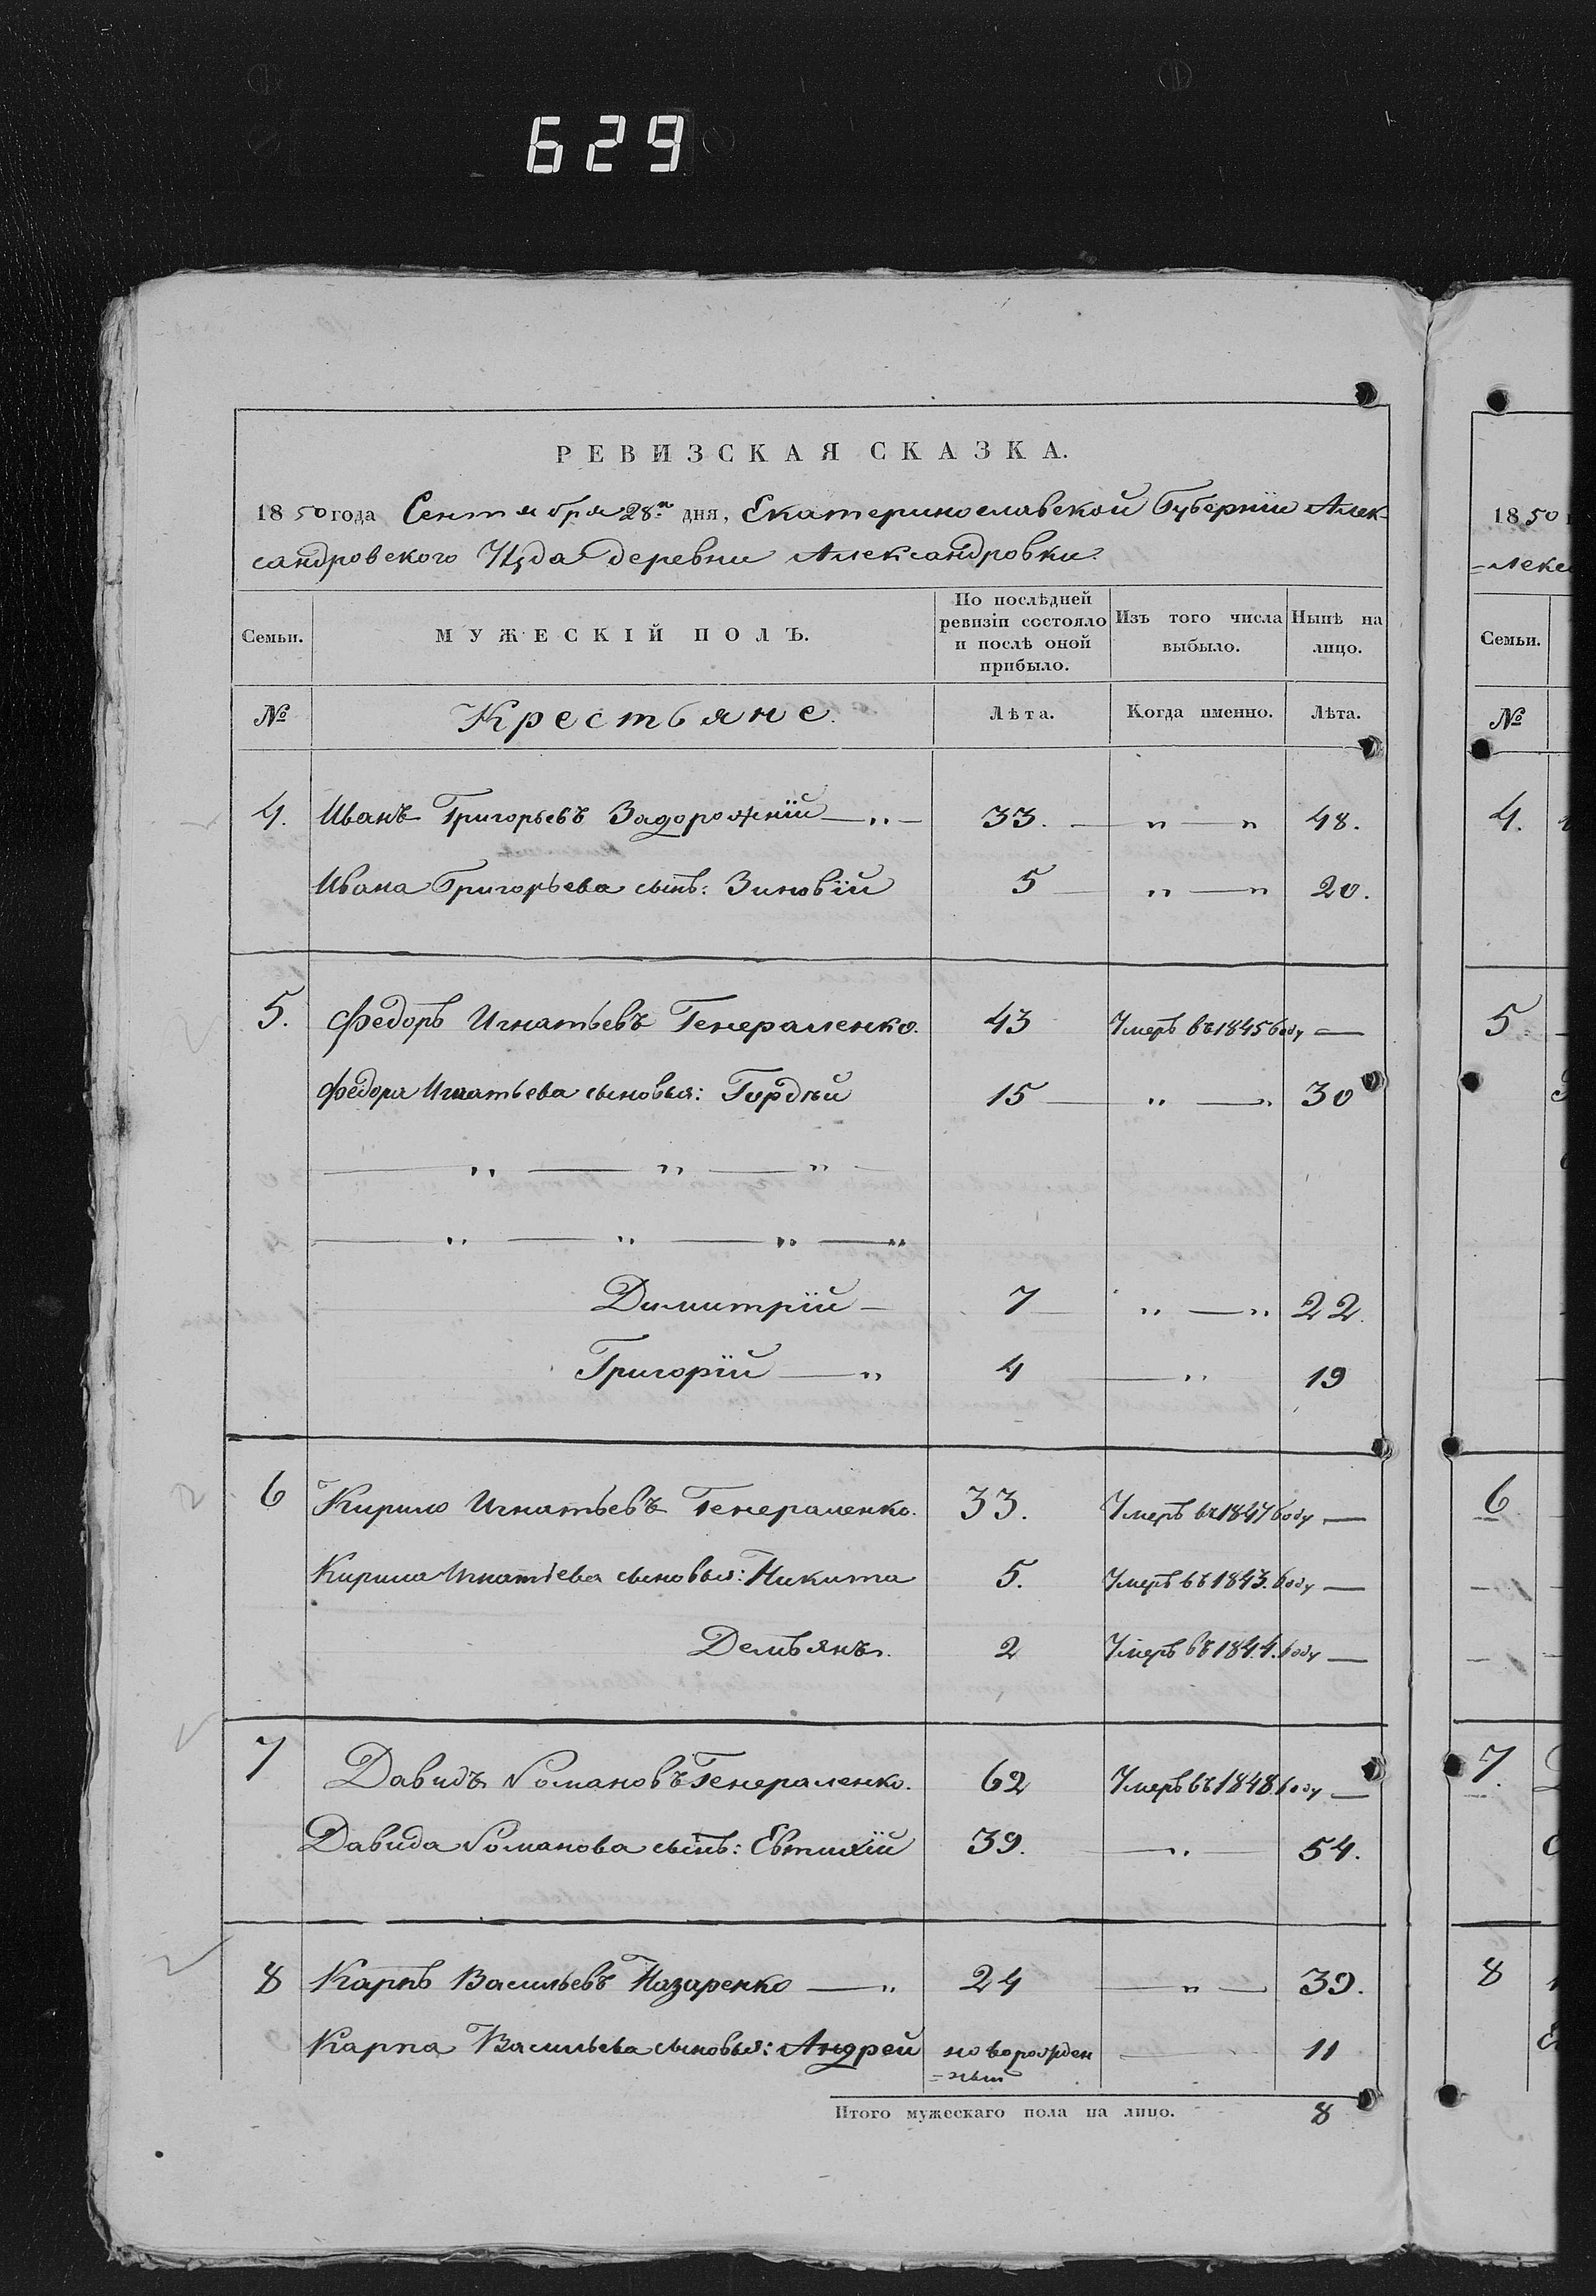 629
РЕВИЗСКАЯ СКАЗКА.
1850 года Сентября 28го дня, Екатеринославской Губерніи Алек-
сандровского Уѣзда деревни Александровки
Семьи. МУЖЕСКІЙ ПОЛЪ. По послѣдней ревизіи состояло и послѣ оной прибыло. Изъ того числа выбыло. Нынѣ на лицо.
№ Крестьяне. Лѣта. Когда именно. Лѣта.
4. Иванъ Григорьевъ Задорожній — „ — 33. — „ — „ 48.
Ивана Григорьева сынъ: Зиновій 5 — „ — „ 20.
5. Федоръ Игнатьевъ Генераленко. 43 Умеръ въ 1845 году —
Федора Игнатьева сыновья: Гордѣй 15 — „ — „ 30
— „ — „ — „ —
— „ — „ — „ — „
Димитрій — 7 — „ — „ 22.
Григорій — „ 4 — „ 19
6 Кирило Игнатьевъ Генераленко. 33. Умеръ въ 1847 году —
Кирила Игнатіева сыновья: Никита 5. Умеръ въ 1843. году —
Демьянъ. 2 Умеръ въ 1844. году —
7 Давидъ Романовъ Генераленко. 62 Умеръ въ 1848 году —
Давида Романова сынъ: Евтихій 39. — „ 54.
8 Карпъ Васильевъ Назаренко — „ 24 — „ — 39.
Карпа Васильева сыновья: Андрей новорожден — 11
=ный
Итого мужескаго пола на лицо. 8
1850
=лекс
Семьи.
№
4.
5
6
7.
8